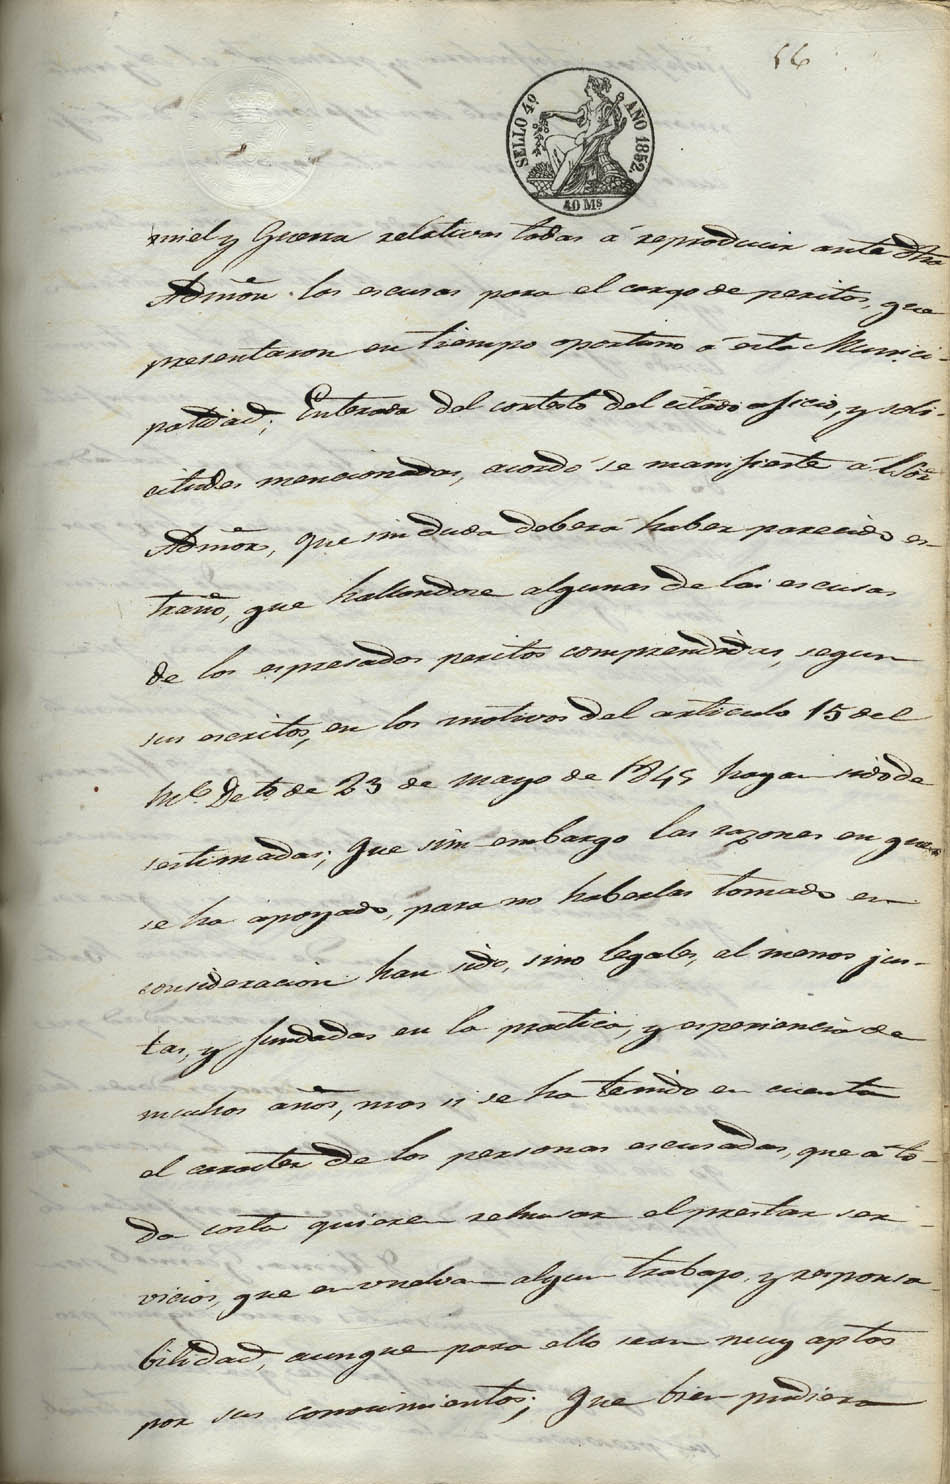 56
SELLO 4º AÑO 1852.
40 Ms
miel y Guerra relativas todas á reproducir ante dha
Admõn. las escusas para el cargo de peritos, que
presentaron en tiempo oportuno á esta Munici-
palidad; Enterada del contesto del citado oficio, y soli-
citudes mencionadas, acordó se manifieste á dho Sõr
Admõr, que sin duda deberá haber parecido es-
traño, que hallandose algunas de las escusas
de los espresados peritos comprendidas, segun
sus escritos, en los motivos del articulo 15 del
Rl. Deto de 23 de mayo de 1845 hayan sido de
sestimadas; Que sin embargo las razones en que
se ha apoyado, para no haberlas tomado en
consideracion han sido, sino legales, al menos jus-
tas, y fundadas en la practica, y esperiencia de
muchos años, mas si se ha tenido en cuenta
el caracter de las personas escusadas, que á to-
da costa quieren rehusar el prestar ser-
vicios, que envuelvan algun trabajo, y responsa-
bilidad, aunque para ello sean muy aptos
por sus conocimientos; Que bien pudiera